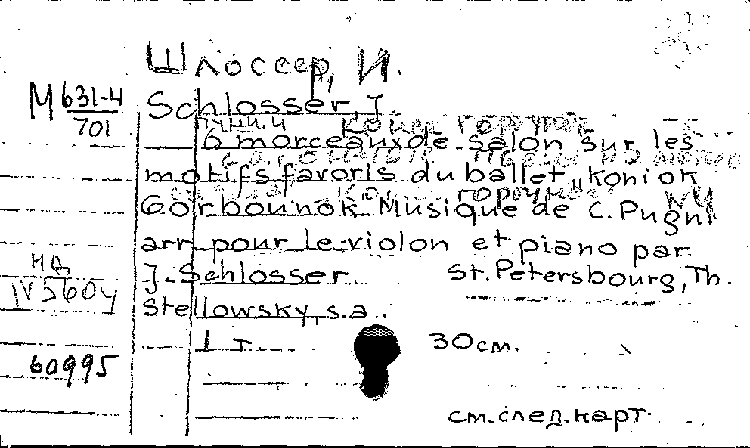 Шлоссер, И.
М 631-4
701
Schlosser, J.
Пуни. Ц
6 morceaux de salon sur les
motifs favoris du ballet „Koniok
Gorbounok". Musique de C. Pugni
arr. pour le violon et piano par
J. Schlosser St. Petersbourg, Th.
Stellowsky, s.a.
1 т. 30 см.
60995
см. след. карт.